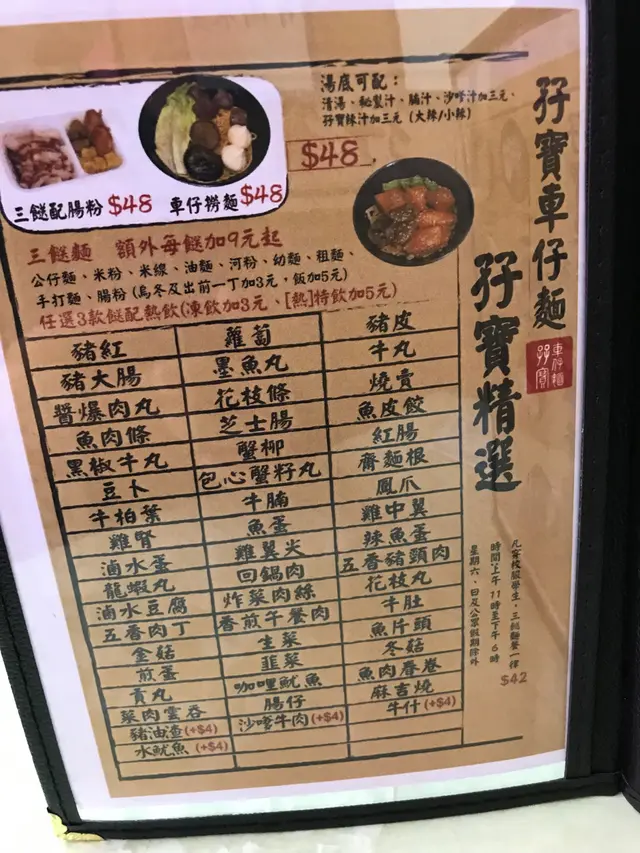 孖寶車仔麵
孖寶精選
車仔麵
孖寶
湯底可配：
清湯、秘製汁、腩汁、沙嗲汁加三元、
孖寶辣汁加三元 (大辣/小辣)
$48
三餸配腸粉 $48 車仔撈麵 $48
三餸麵 額外每餸加9元起
公仔麵、米粉、米線、油麵、河粉、幼麵、粗麵、
手打麵、腸粉 (烏冬及出前一丁加3元，飯加5元)
任選3款餸配熱飲(凍飲加3元、[熱]特飲加5元)
豬紅 蘿蔔 豬皮
豬大腸 墨魚丸 牛丸
醬爆肉丸 花枝條 燒賣
魚肉條 芝士腸 魚皮餃
黑椒牛丸 蟹柳 紅腸
豆卜 包心蟹籽丸 齋麵根
牛柏葉 牛腩 鳳爪
雞腎 魚蛋 雞中翼
滷水蛋 雞翼尖 辣魚蛋
龍蝦丸 回鍋肉 五香豬頸肉
滷水豆腐 炸菜肉絲 花枝丸
五香肉丁 香煎午餐肉 牛肚
金菇 生菜 魚片頭
煎蛋 韮菜 冬菇
貢丸 咖哩魷魚 魚肉春卷
菜肉雲吞 腸仔 麻吉燒
豬油渣(+$4) 沙嗲牛肉(+$4) 牛什(+$4)
水魷魚(+$4)
凡穿校服學生，三餸麵餐一律
$42
時間:上午11時至下午6時
星期六、日及公眾假期除外